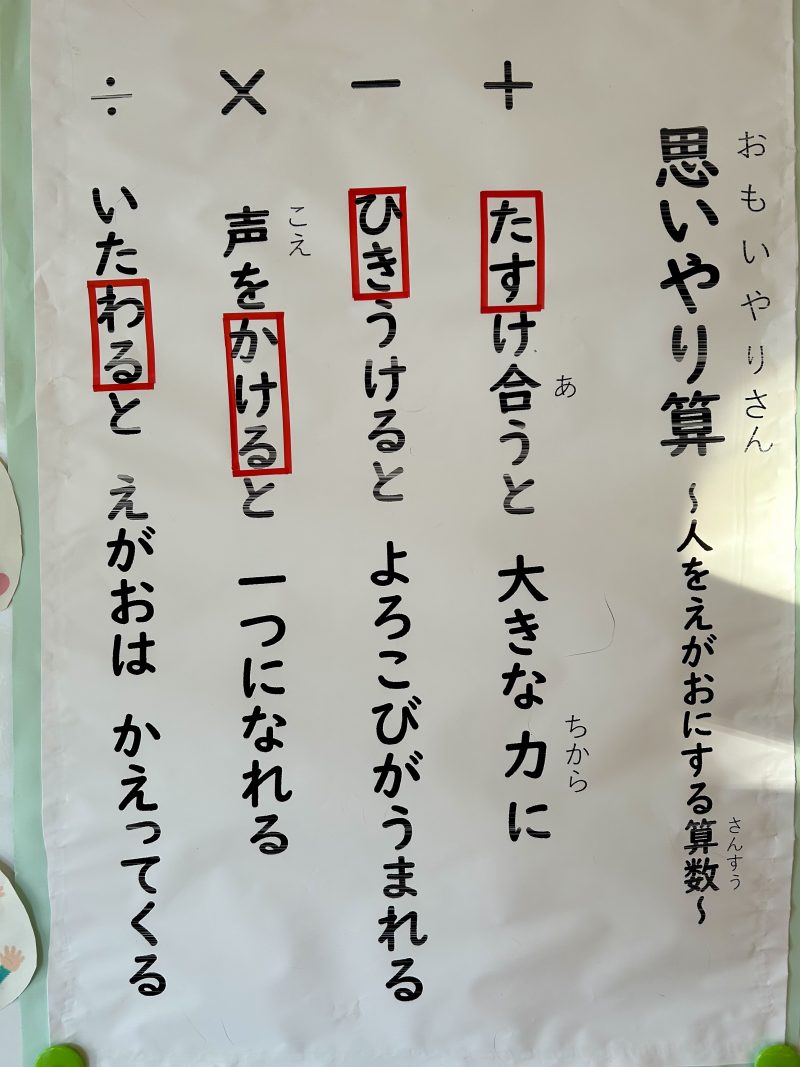 思いやり算 ～人をえがおにする算数～
おもいやりさん
さんすう
＋ たすけ合うと 大きな力に
あ
ちから
－ ひきうけると よろこびがうまれる
× 声をかけると 一つになれる
こえ
÷ いたわると えがおは かえってくる